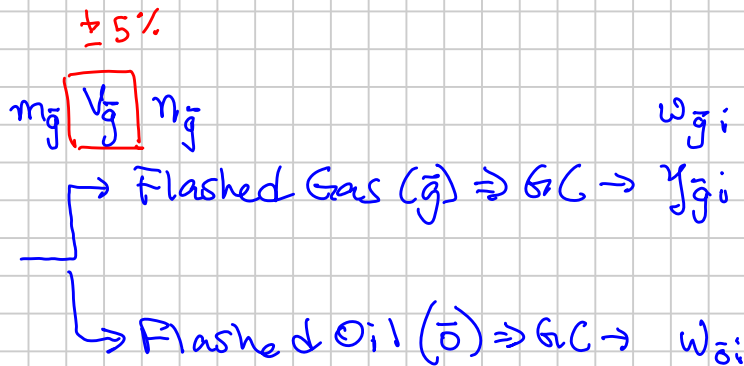 ± 5%
m_ḡ V_ḡ n_ḡ w_ḡi
Flashed Gas (ḡ) ⇒ GC → y_ḡi
Flashed Oil (ō) ⇒ GC → w_ōi